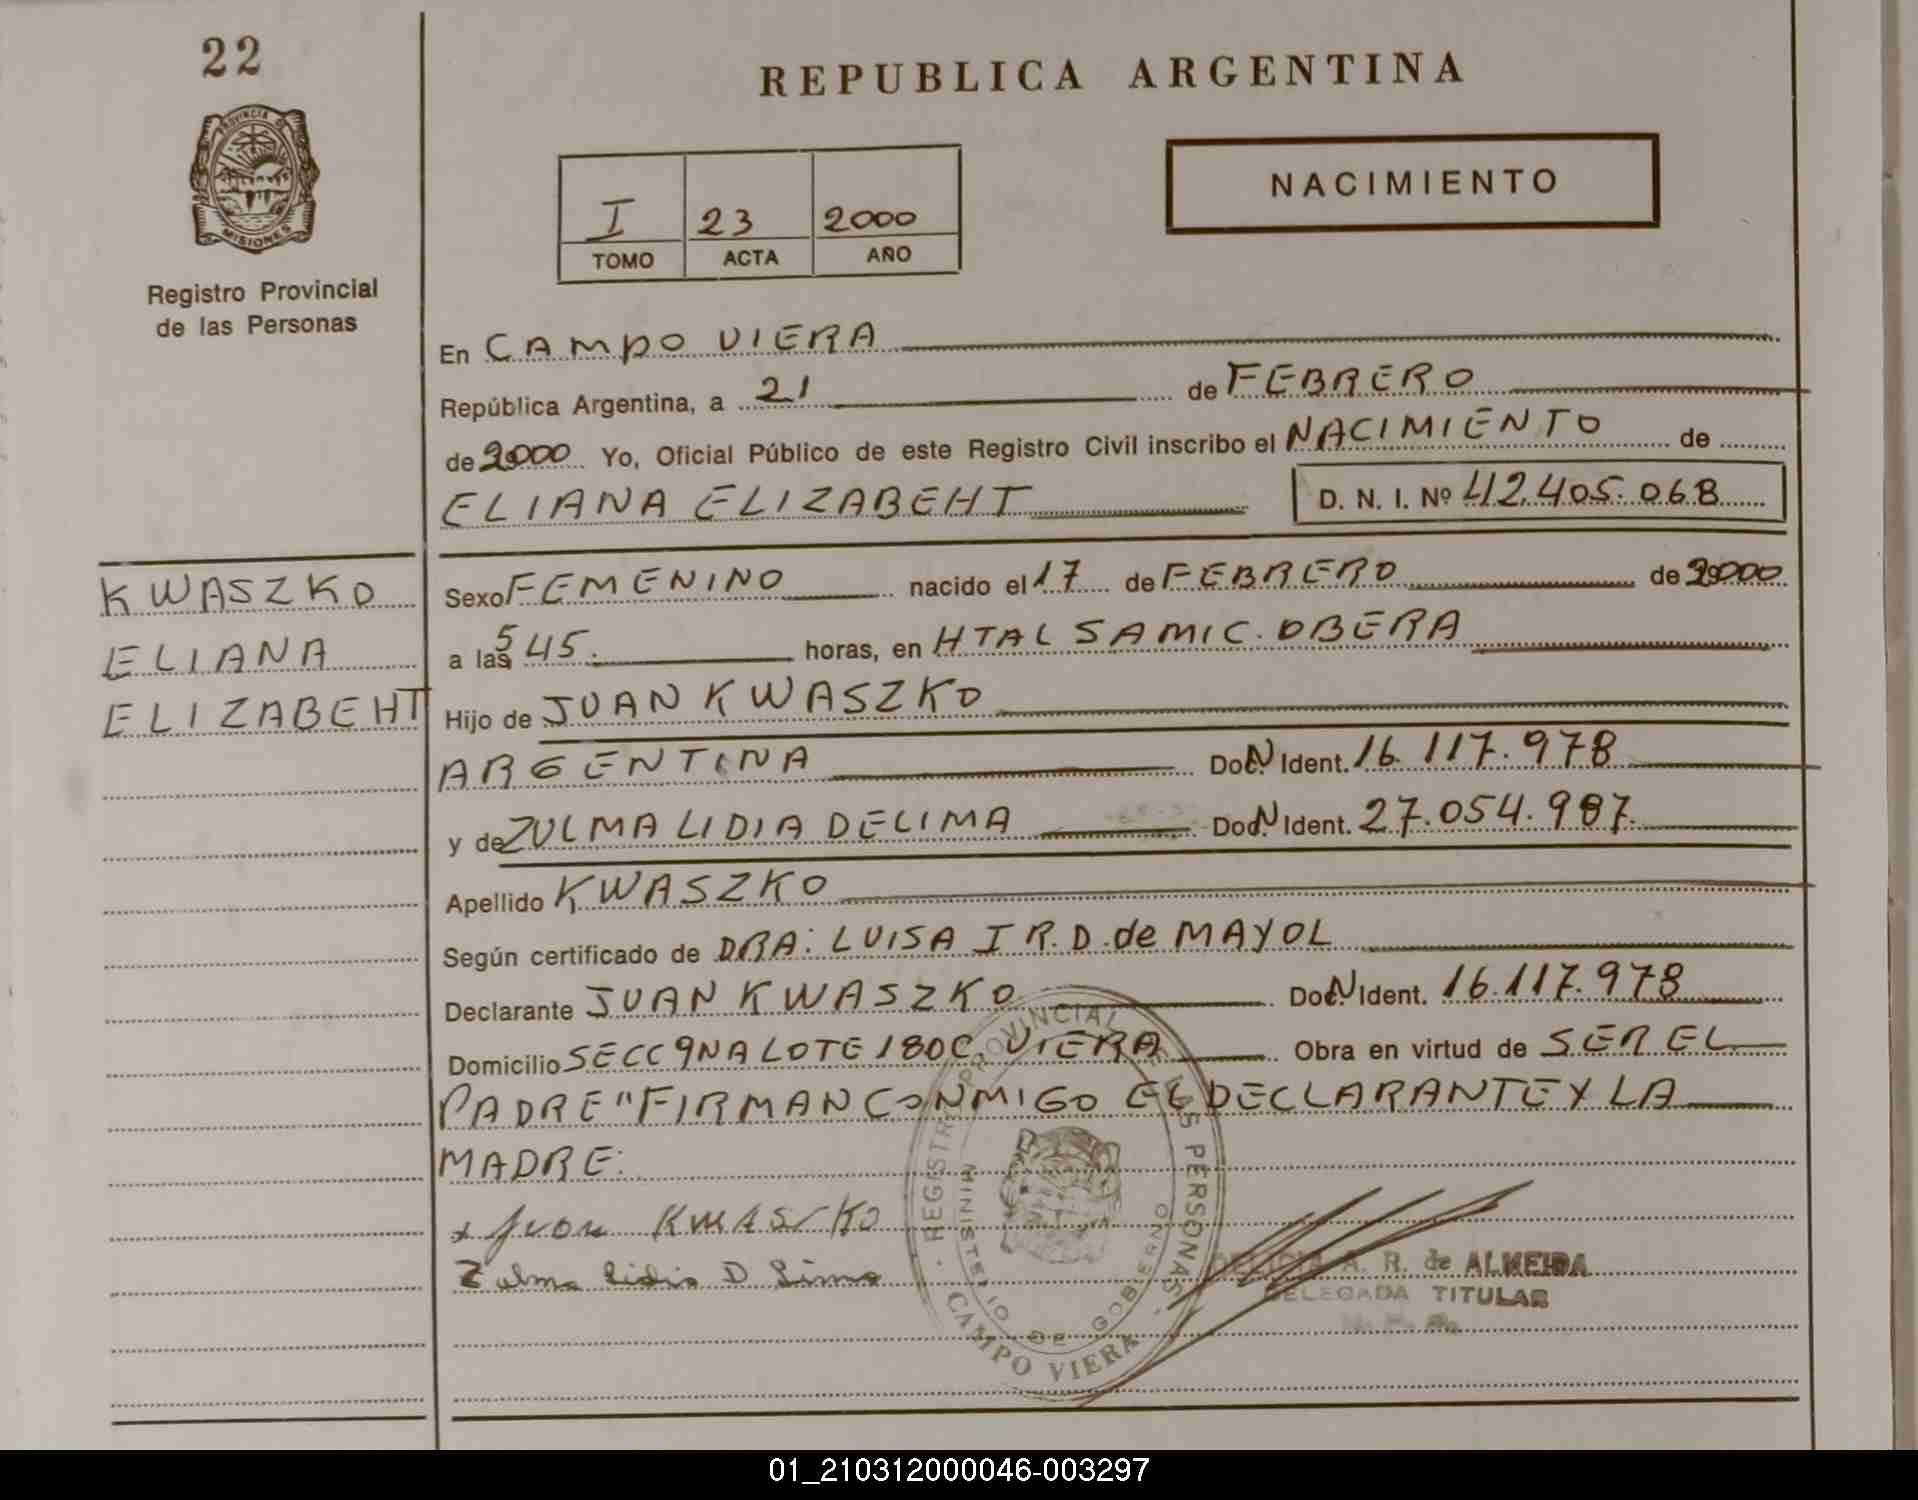 22
REPUBLICA ARGENTINA
PROVINCIA DE
MISIONES
Registro Provincial
de las Personas
I 23 2000
TOMO ACTA AÑO
NACIMIENTO
En CAMPO VIERA
República Argentina, a 21 de FEBRERO
de 2000 Yo, Oficial Público de este Registro Civil inscribo el NACIMIENTO de
ELIANA ELIZABEHT D. N. I. Nº 42.405.068
KWASZKO
ELIANA
ELIZABEHT
Sexo FEMENINO nacido el 17 de FEBRERO de 2000
a las 5 45. horas, en HTAL SAMIC. OBERA
Hijo de JUAN KWASZKO
ARGENTINA Doc. N Ident. 16.117.978
y de ZULMA LIDIA DELIMA Doc. N Ident. 27.054.987.
Apellido KWASZKO
Según certificado de DRA: LUISA I R. D. de MAYOL
Declarante JUAN KWASZKO Doc. N Ident. 16.117.978
Domicilio SECC 9NA LOTE 180 C. VIERA Obra en virtud de SER EL
PADRE "FIRMAN CONMIGO EL DECLARANTE Y LA
MADRE:
x Juan KWASZKO
Zulma Lidia D Lima
REGISTRO PROVINCIAL DE LAS PERSONAS
MINISTERIO DE GOBIERNO
CAMPO VIERA
DELICIA A. R. de ALMEIDA
DELEGADA TITULAR
01_210312000046-003297